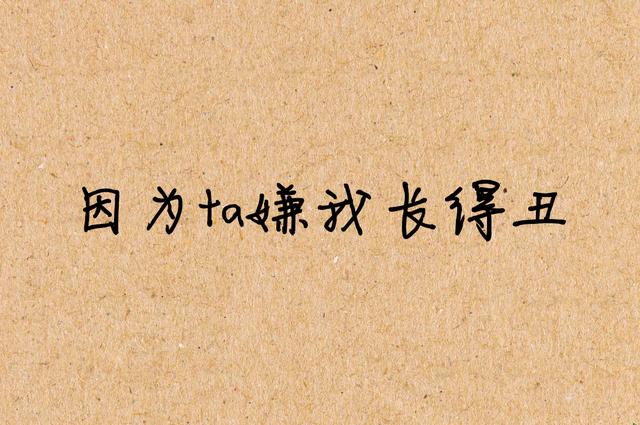 因为ta嫌我长得丑